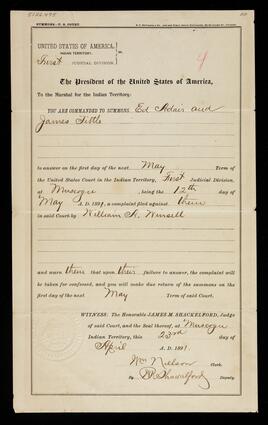 SUMMONS—U. S. COURT.
UNITED STATES OF AMERICA,
INDIAN TERRITORY,
First JUDICIAL DIVISION.
The President of the United States of America,
To the Marshal for the Indian Territory:
YOU ARE COMMANDED TO SUMMONS Ed Adair and
James Tittle
to answer on the first day of the next May Term of
the United States Court in the Indian Territory, First Judicial Division,
at Muscogee, being the 12th day of
May A. D. 1891, a complaint filed against them
in said Court by William H. Winsell
and warn them that upon their failure to answer, the complaint will
be taken for confessed, and you will make due return of the summons on the
first day of the next May Term.
WITNESS: The Honorable JAMES M. SHACKELFORD, Judge
of said Court, and the Seal thereof, at Muscogee
Indian Territory, this 23rd day of
April A. D. 1891.
Wm Nelson Clerk.
By Deputy.